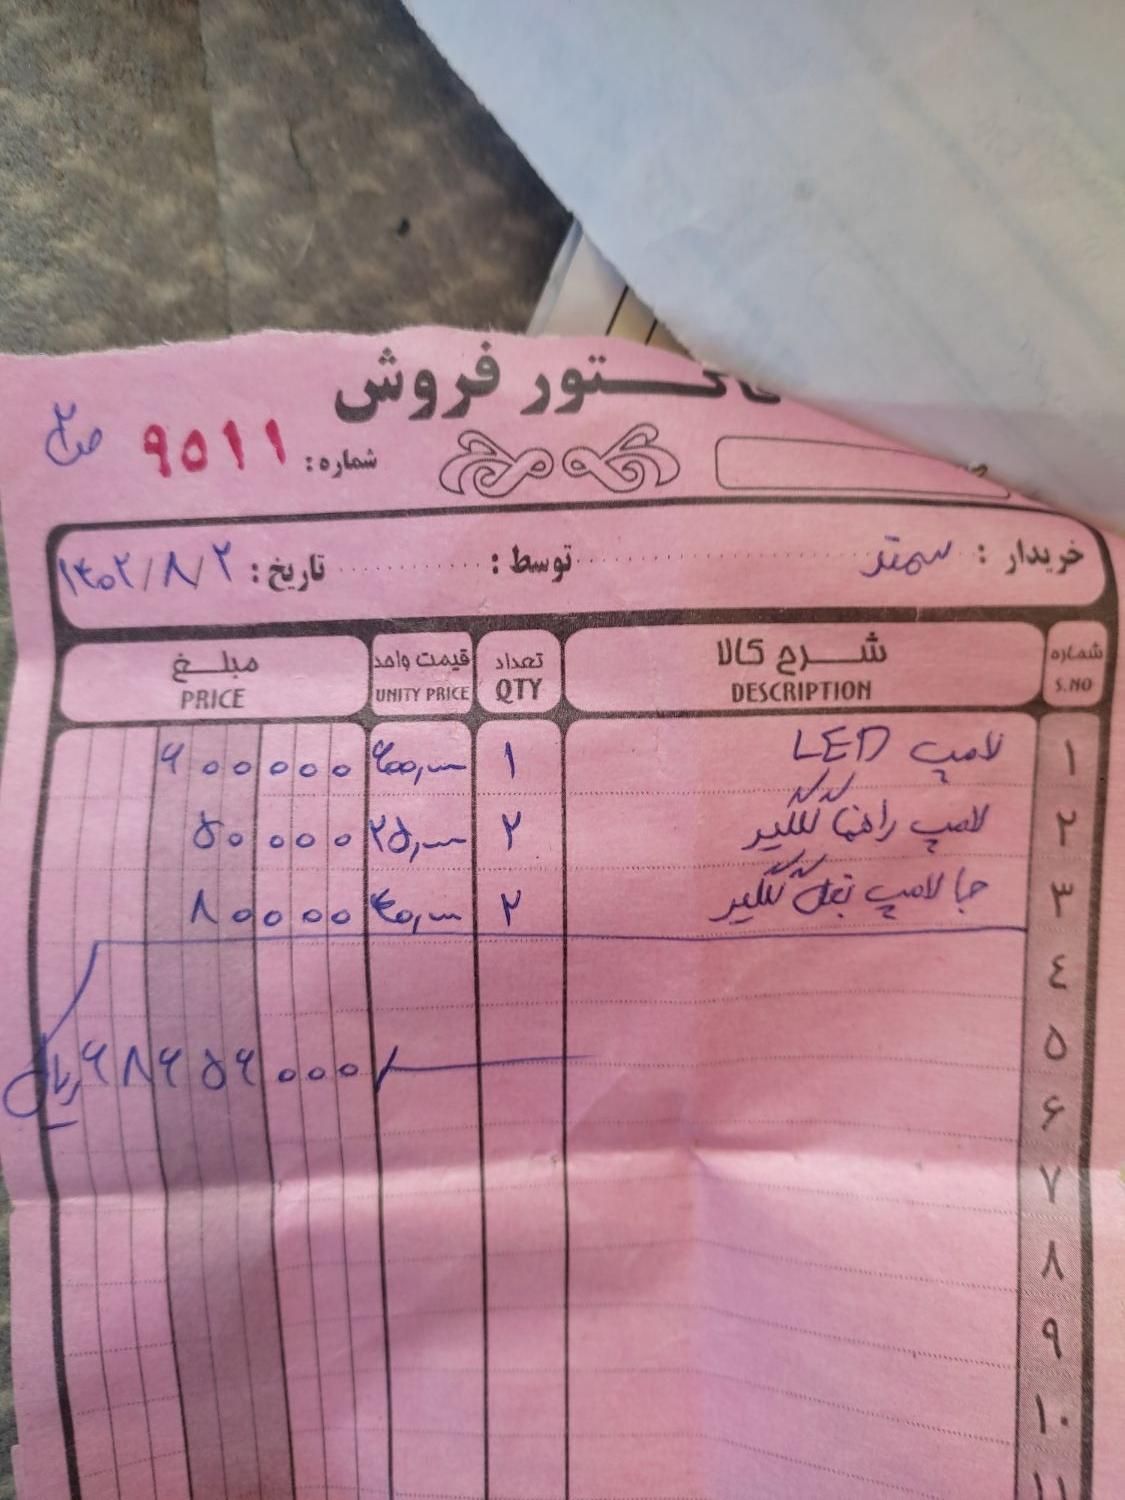 فاکتور فروش
شماره: ۹۵۱۱ ص۲
خریدار: سمند توسط: تاریخ: ۱۴۰۲/۸/۲
شماره شرح کالا تعداد قیمت واحد مبلغ
S.NO DESCRIPTION QTY UNITY PRICE PRICE
۱ لامپ LED ۱ ۶۰۰,۰۰۰ ۶۰۰۰۰۰
۲ لامپ راهنما گلگیر ۲ ۲۵,۰۰۰ ۵۰۰۰۰
۳ جا لامپ بغل گلگیر ۲ ۴۰,۰۰۰ ۸۰۰۰۰
۴
۵ ۶۸۶۵۶۰۰۰ ریال
۶
۷
۸
۹
۱۰
۱۱